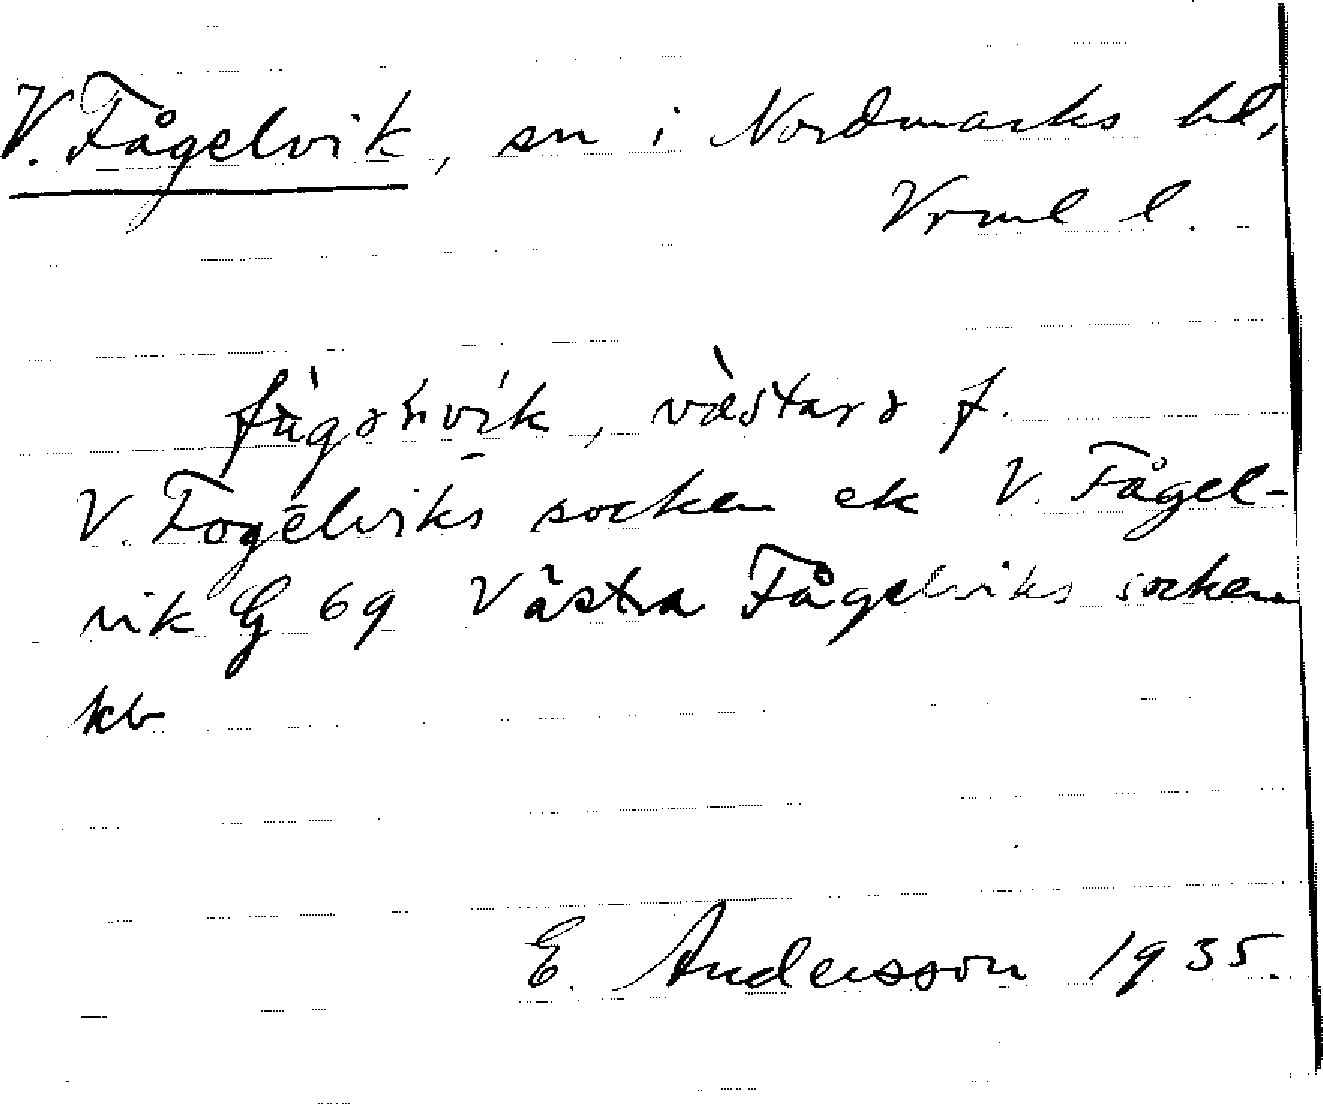 V. Fågelvik, sn i Nordmarks hd,
Vrml l.
västarə f.
V. Fogelviks socken ek V. Fågel-
vik G 69 Västra Fågelviks socken
kb
E. Andersson 1935.